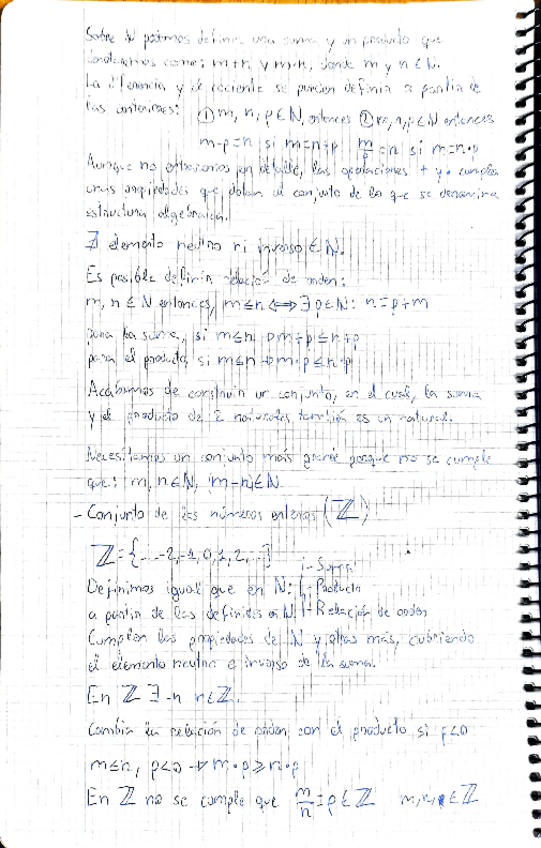 Sobre ℕ podemos definir una suma y un producto que
denotaremos como: m+n y m·n, donde m y n ∈ ℕ.
La diferencia y el cociente se pueden definir a partir de
las anteriores: ① m, n, p ∈ ℕ, entonces ② m, n, p ∈ ℕ entonces
m-p=n si m=n+p m/p=n si m=n·p
Aunque no entraremos en detalle, las operaciones + y · cumplen
unas propiedades que dotan al conjunto de lo que se denomina
estructura algebraica.
∄ elemento neutro ni inverso ∈ ℕ.
Es posible definir relación de orden:
m, n ∈ ℕ entonces, m≤n ⟺ ∃ p∈ℕ: n=p+m
para la suma, si m≤n → m+p≤n+p
para el producto, si m≤n → m·p≤n·p
Acabamos de construir un conjunto, en el cual, la suma
y el producto de 2 naturales también es un natural.
Necesitamos un conjunto más grande porque no se cumple
que: m, n∈ℕ, (m-n)∈ℕ
- Conjunto de los números enteros (ℤ)
ℤ={...-2,-1,0,1,2,...}
Definimos igual que en ℕ: - Suma
- Producto
a partir de las definidas en ℕ - Relación de orden
Cumplen las propiedades de ℕ y otras más, cubriendo
el elemento neutro e inverso de la suma.
En ℤ ∃ -n n∈ℤ.
Cambia la relación de orden con el producto si p<0
m≤n, p<0 → m·p≥n·p
En ℤ no se cumple que m/n=p∈ℤ m,n,p∈ℤ